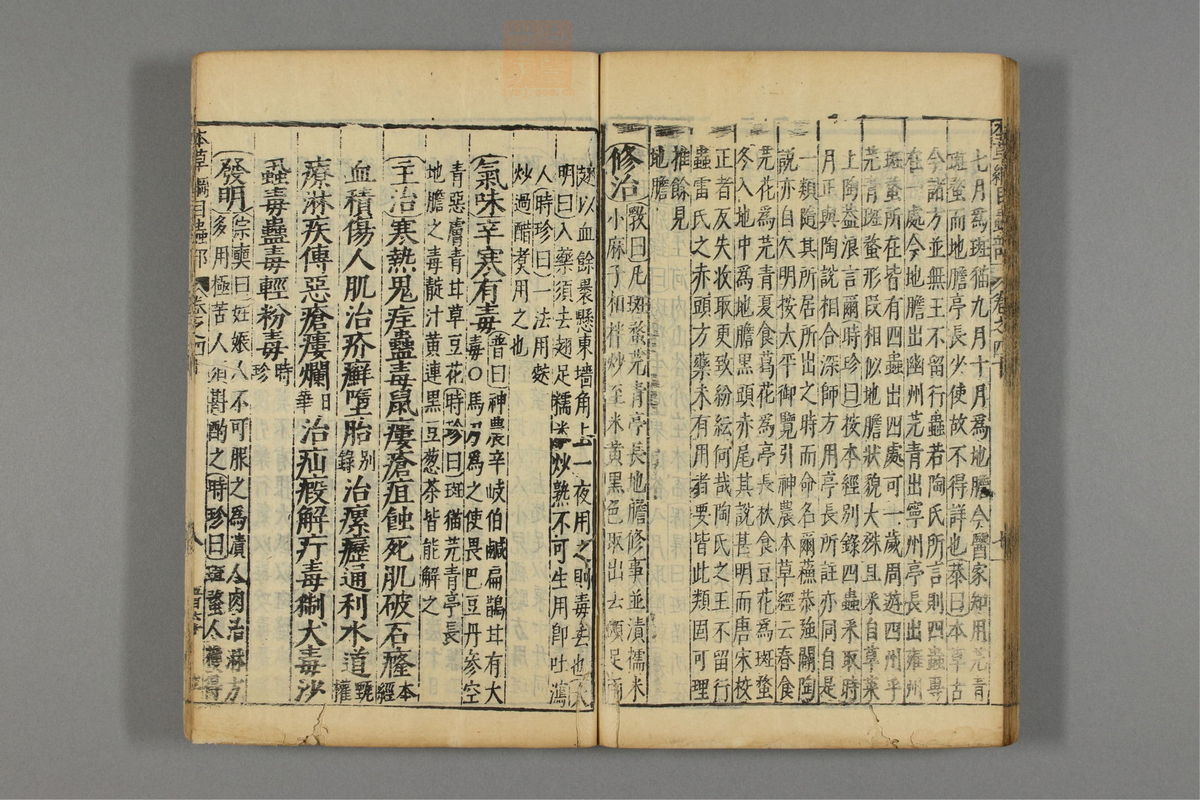 七月爲斑猫九月十月爲地膽今醫家知用芫青
斑蝥而地膽亭長少使故不得詳也恭曰本草古
今諸方並無王不留行蟲若陶氏所言則四蟲專
在一處今地膽出幽州芫青出寧州亭長出雍州
斑蝥所在皆有四蟲出四處可一歲周遊四州乎
芫青斑蝥形段相似地膽狀貌大殊且釆自草菜
上陶蓋浪言爾時珍曰按本經別錄四蟲釆取時
月正與陶說相合深師方用亭長所註亦同自是
一類隨其所居所出之時而命名爾蘓恭強闢陶
說亦自欠明按太平御覽引神農本草經云春食
芫花爲芫青夏食葛花爲亭長秋食豆花爲斑蝥
冬入地中爲地膽黒頭赤尾其說甚明而唐宋校
正者反失收取更致紛紜何哉陶氏之王不留行
蟲雷氏之赤頭方藥未有用者要皆此類固可理
推餘見
地膽
修治 斆曰凡斑蝥芫青亭長地膽修事並漬糯米
小麻子相拌炒至米黄黒色取出去頭足兩
翅以血餘裹懸東墻角上一夜用之則毒去也大
明曰入藥須去翅足糯米炒熟不可生用卽吐瀉
人時珍曰一法用麩
炒過醋煑用之也
氣味辛寒有毒 普曰神農辛岐伯鹹扁鵲甘有大
毒○馬刀爲之使畏巴豆丹參空
青惡膚青甘草豆花時珍曰斑猫芫青亭長
地膽之毒靛汁黄連黒豆葱茶皆能解之
主治寒熱鬼疰蠱毒鼠瘻瘡疽蝕死肌破石癃 本經
血積傷人肌治疥癬墮胎 別錄 治瘰癧通利水道 甄權
療淋疾傅惡瘡瘻爛 日華 治疝瘕解疔毒猘犬毒沙
蝨毒蠱毒輕粉毒 時珍
發明 宗奭曰妊娠人不可服之爲潰人肉治淋方
多用極苦人須斟酌之時珍曰斑蝥人獲得